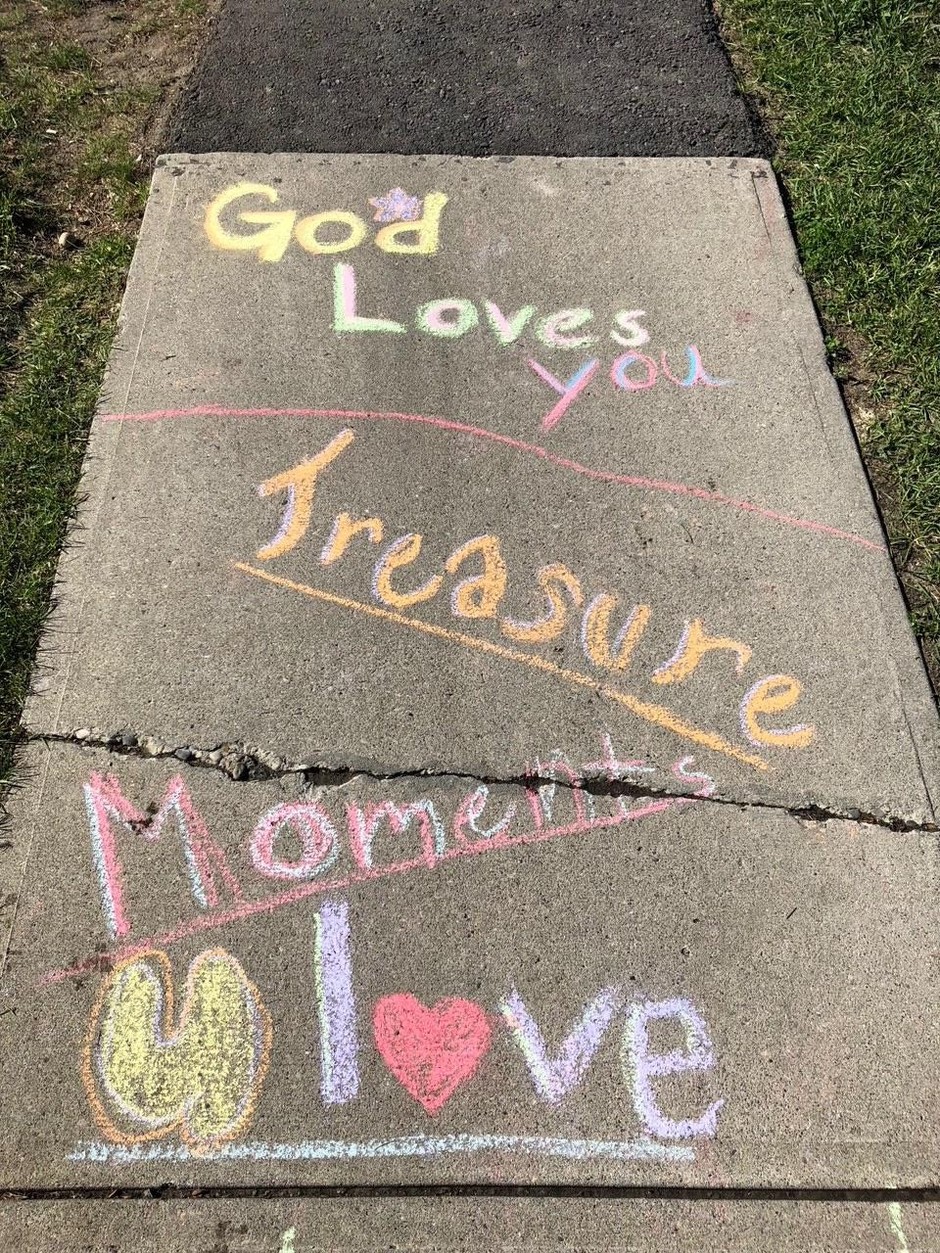 God
Loves
you
Treasure
Moments
u l♥ve